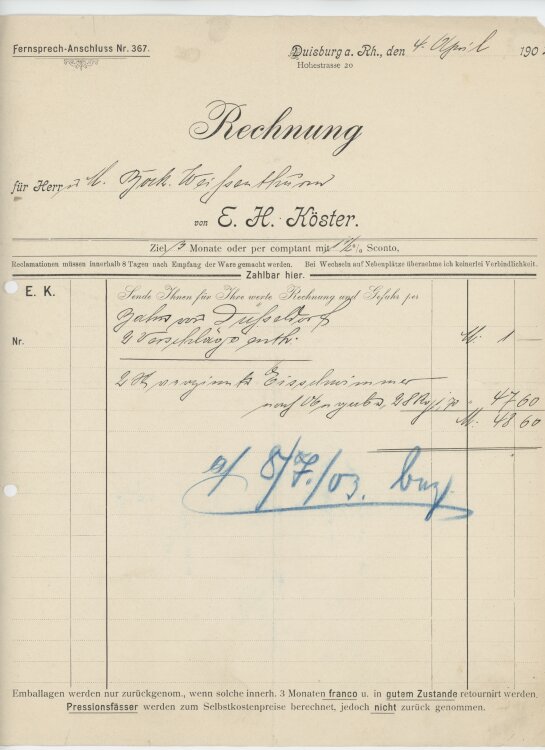 Fernsprech-Anschluss Nr. 367.
Duisburg a. Rh., den 4. April 190
Hohestrasse 20
Rechnung
für Herrn M. Bock. Weißenthurm
von E. H. Köster.
Ziel 3 Monate oder per comptant mit 1½% Sconto,
Reclamationen müssen innerhalb 8 Tagen nach Empfang der Ware gemacht werden. Bei Wechseln auf Nebenplätze übernehme ich keinerlei Verbindlichkeit.
Zahlbar hier.
E. K. Sende Ihnen für Ihre werte Rechnung und Gefahr per
Bahn von Düsseldorf
Nr. 2 Verschläge enth. M. 1 —
2 St verzinnte Eisschwimmer
nach Angabe, 28 47 60
M. 48 60
8/7./03.
Emballagen werden nur zurückgenom., wenn solche innerh. 3 Monaten franco u. in gutem Zustande retournirt werden.
Pressionsfässer werden zum Selbstkostenpreise berechnet, jedoch nicht zurück genommen.